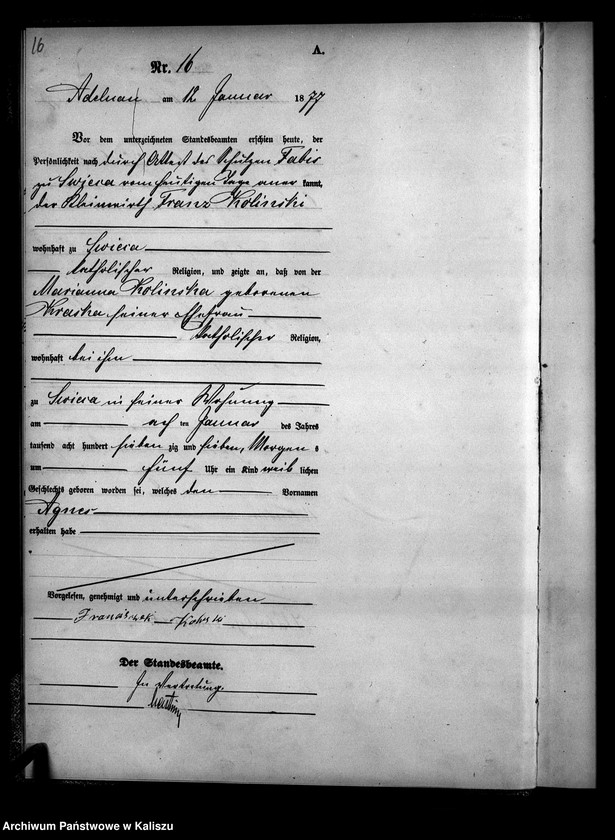 16
A.
Nr. 16
Adelnau am 12 Januar 1877
Vor dem unterzeichneten Standesbeamten erschien heute, der
Persönlichkeit nach durch Attest des Schulzen Fabis
zu Swieca vom heutigen Tage aner kannt,
der Kleinwirth Franz Kolinski
wohnhaft zu Swieca
katholischer Religion, und zeigte an, daß von der
Marianna Kolinska geborenen
Kraska seiner Ehefrau
katholischer Religion,
wohnhaft bei ihm
zu Swieca in seiner Wohnung
am acht ten Januar des Jahres
tausend acht hundert sieben zig und sieben, Morgen s
um fünf Uhr ein Kind weib lichen
Geschlechts geboren worden sei, welches den Vornamen
Agnes
erhalten habe
Vorgelesen, genehmigt und unterschrieben
Der Standesbeamte.
In Vertretung.
Archiwum Państwowe w Kaliszu